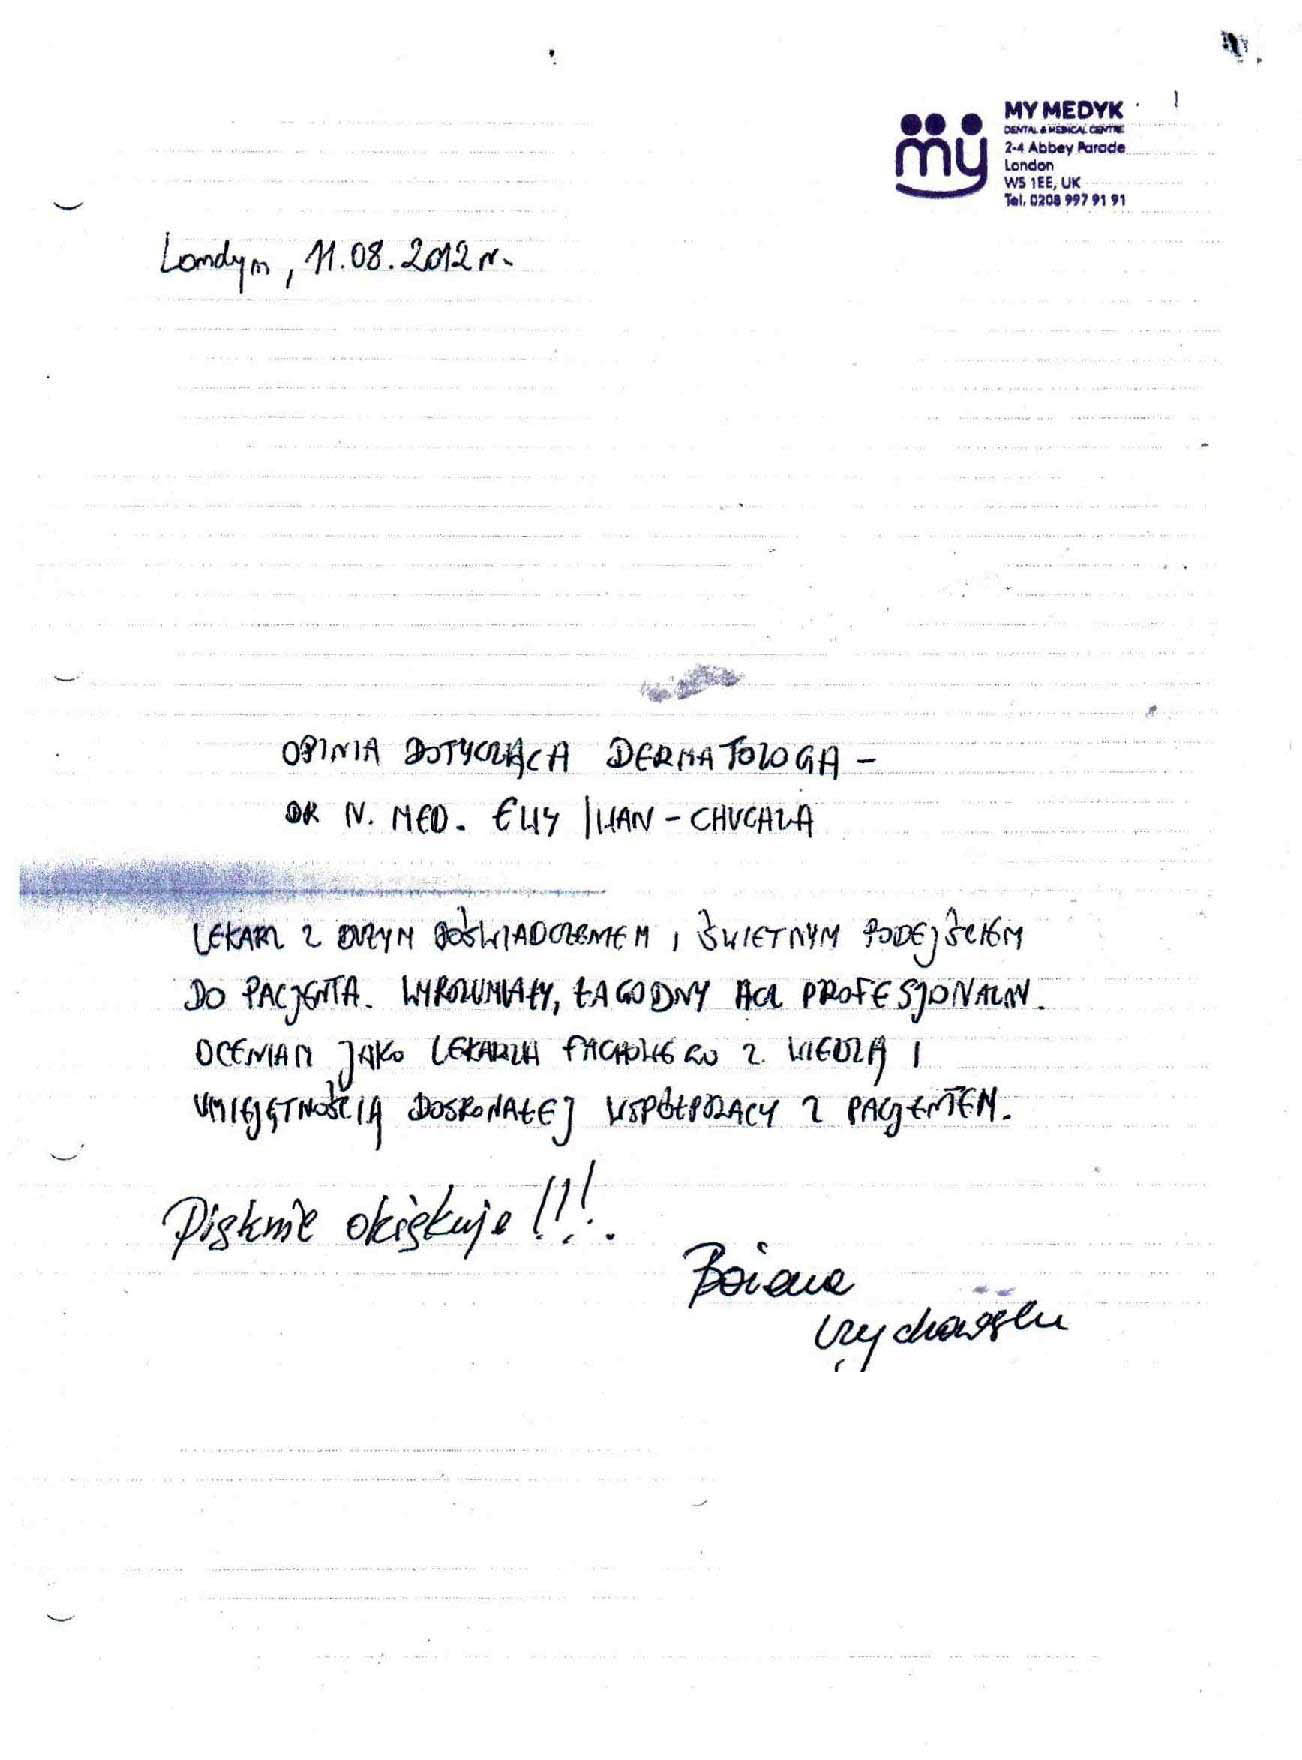 my
MY MEDYK
DENTAL & MEDICAL CENTRE
2-4 Abbey Parade
London
W5 1EE, UK
Tel. 0208 997 91 91
Londyn, 11.08.2012 r.
OPINIA DOTYCZĄCA DERMATOLOGA -
DR N. MED. IWAN - CHUCHLA
LEKARZ Z DUŻYM DOŚWIADCZENIEM I ŚWIETNYM PODEJŚCIEM
DO PACJENTA. WYROZUMIAŁY, ŁAGODNY ACZ PROFESJONALNY.
OCENIAM JAKO LEKARZA FACHOWEGO Z WIEDZĄ I
UMIEJĘTNOŚCIĄ DOSKONAŁEJ WSPÓŁPRACY Z PACJENTEM.
Pięknie dziękuje!!!